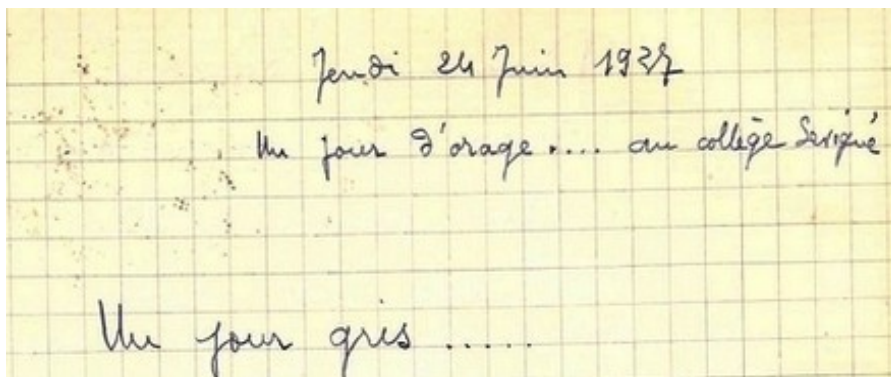 Jeudi 24 Juin 1937
Un jour d'orage.... au collège Sévigné
Un jour gris.....